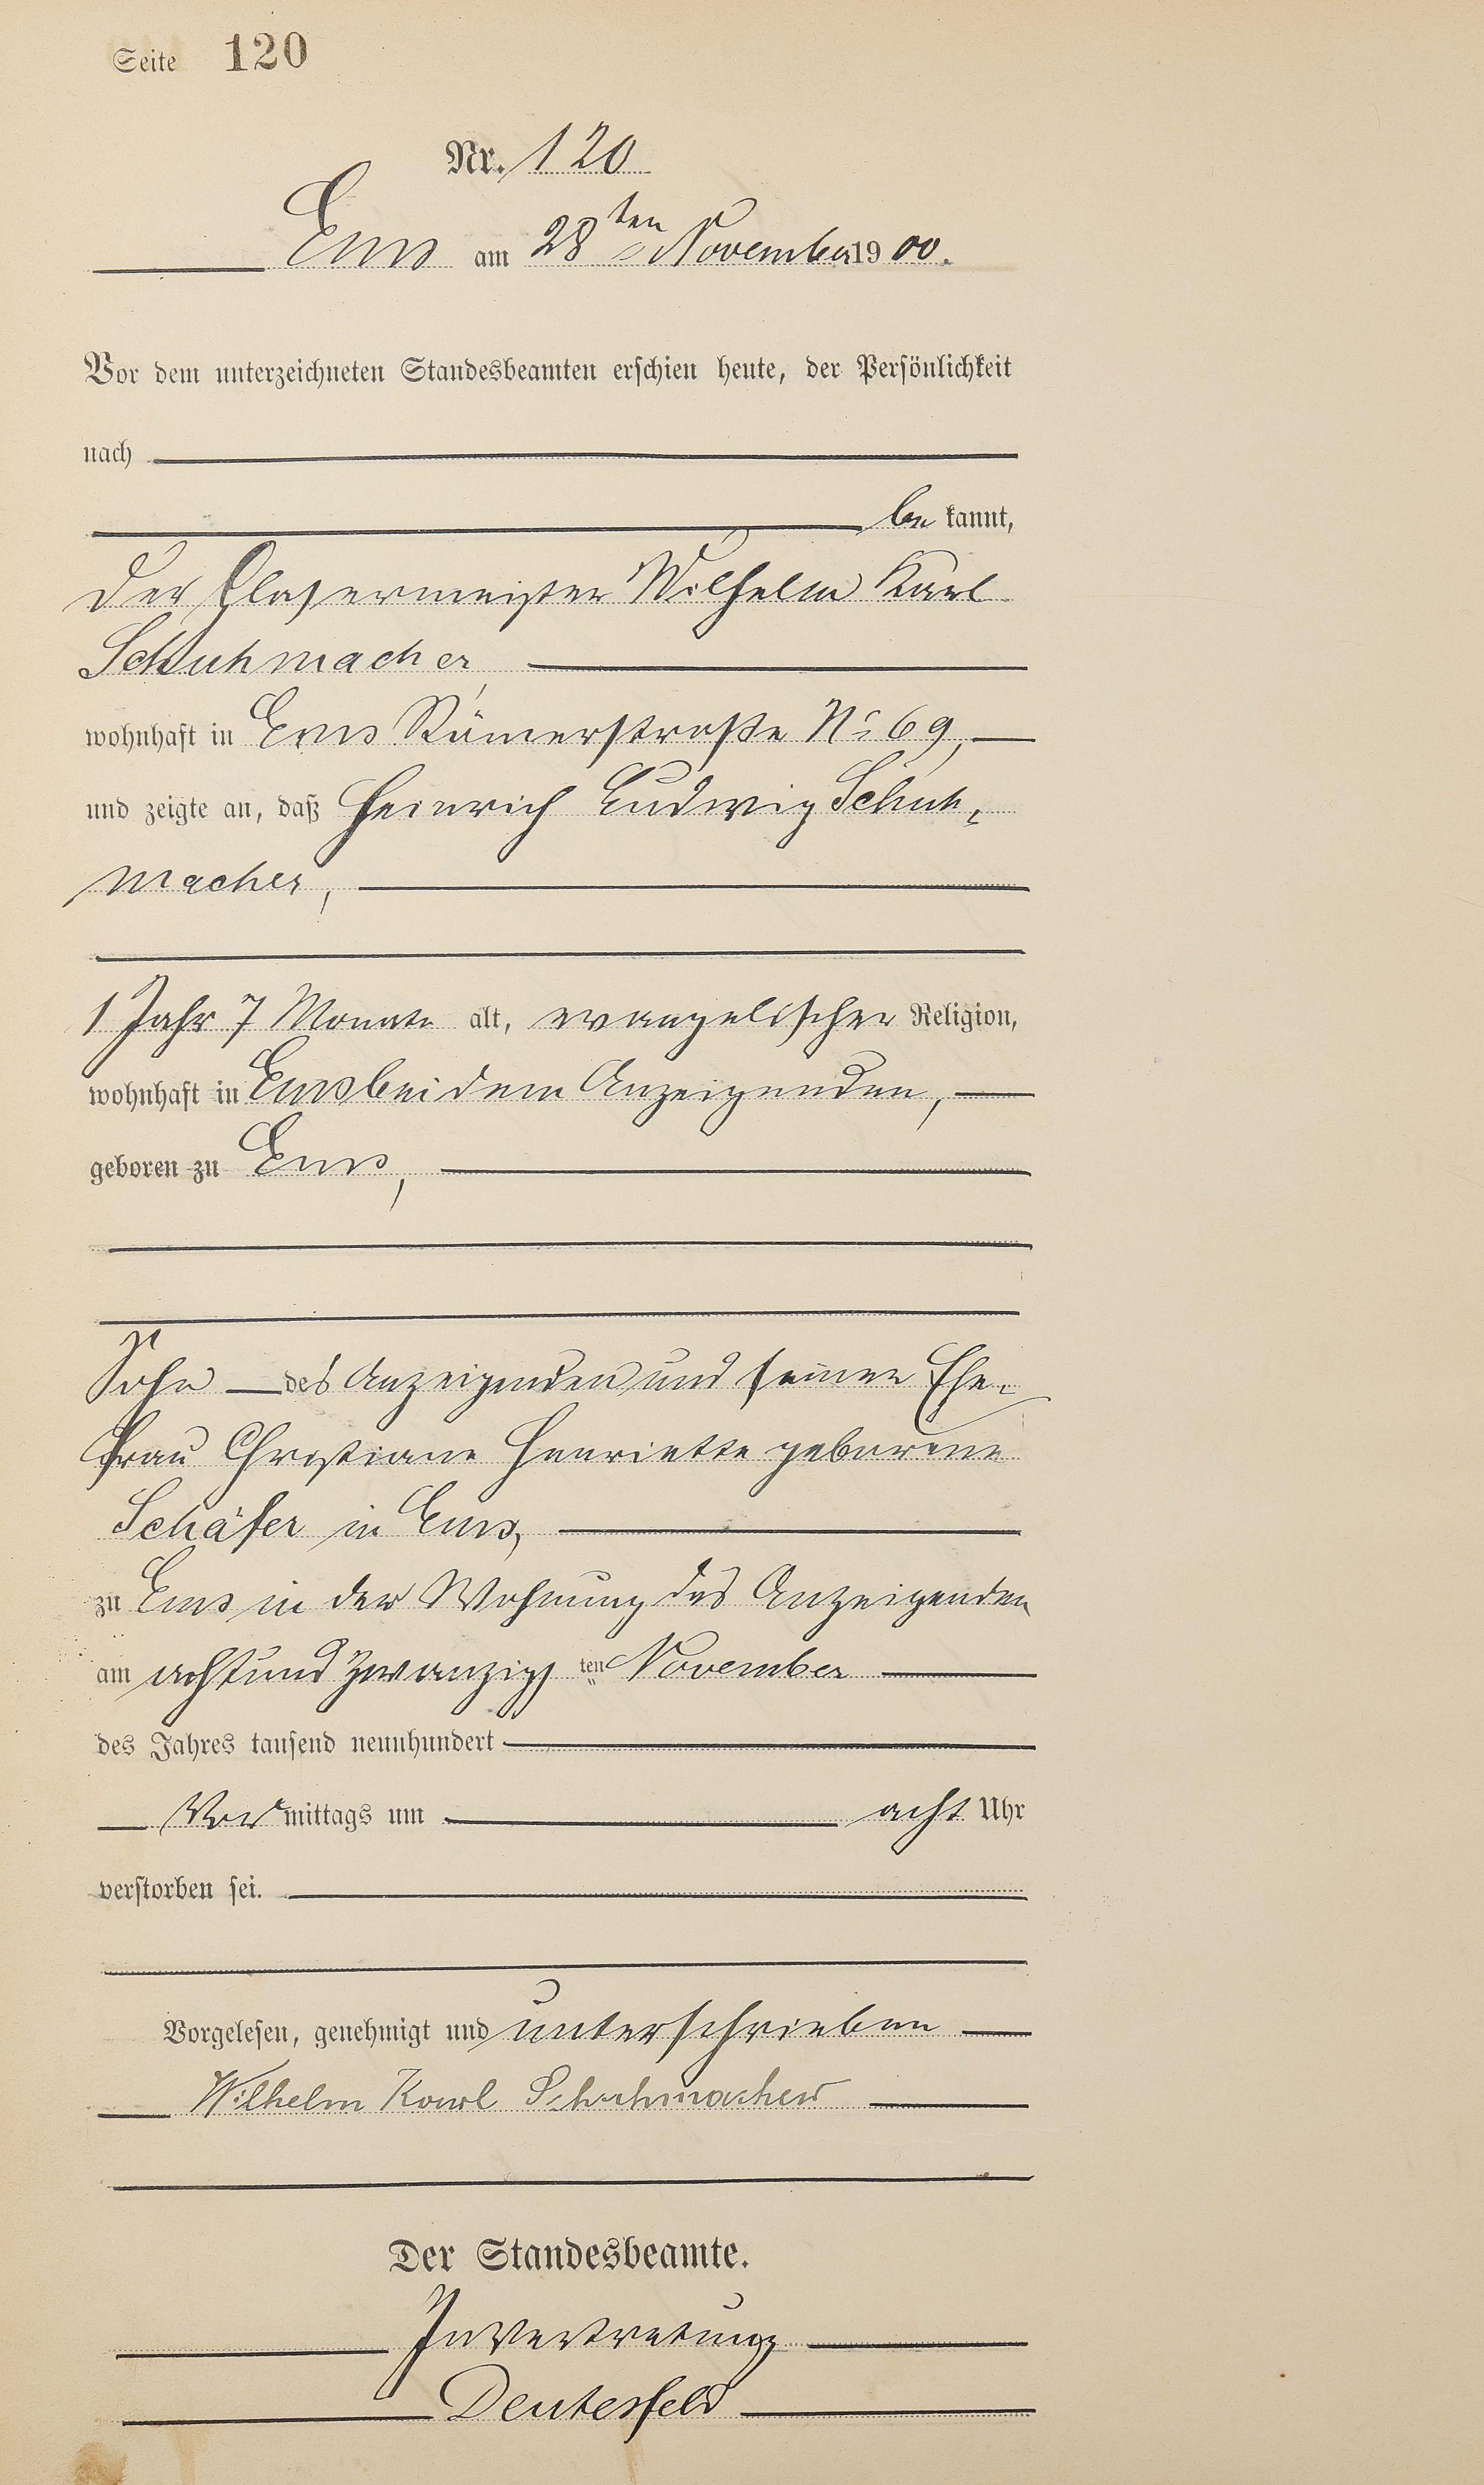 Seite 120
Nr. 120
Ems am 28ten November 1900.
Vor dem unterzeichneten Standesbeamten erschien heute, der Persönlichkeit
nach
be kannt,
der Glasermeister Wilhelm Karl
Schuhmacher
wohnhaft in Ems Römerstraße No 69,
und zeigte an, daß Heinrich Ludwig Schuh-
macher,
1 Jahr 7 Monate alt, evangelischer Religion,
wohnhaft in Ems bei dem Anzeigenden,
geboren zu Ems,
Sohn des Anzeigenden und seiner Ehe-
frau Christiane Henriette geborene
Schäfer in Ems,
zu Ems in der Wohnung des Anzeigenden
am achtundzwanzigsten November
des Jahres tausend neunhundert
Vor mittags um acht Uhr
verstorben sei.
Vorgelesen, genehmigt und unterschrieben
Wilhelm Karl Schuhmacher
Der Standesbeamte.
In Vertretung
Deutesfeld